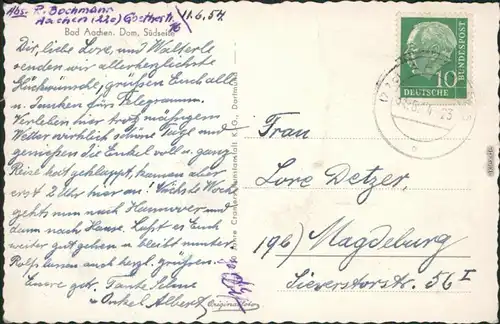 Abs. P. Bochmann
Aachen (22c) Goethestr. 16
11.6.54.
Bad Aachen. Dom, Südseite
Dir, liebe Lore, und Walterle
senden wir allerherzlichste
Glückwünsche, grüßen Euch alle
u. danken fürs Telegramm.
Verleben hier trotz mäßigem
Wetter wirklich schöne Tage und
genießen die Enkel voll u. ganz
Reise hat geklappt, kamen aber
erst 2 Uhr hier an! Nächste Woche
gehts nun nach Hannover und
dann nach Hause. Laßt es Euch
weiter gut gehen u. bleibt munter
Rolfs lassen auch herzl. grüßen.
Eure getr. Tante
u. Onkel Albert
Cramers Kunstanstalt K.G., Dortmund
Originalfoto
10
DEUTSCHE
BUNDESPOST
Frau
Lore Detzer,
19b) Magdeburg
Sieverstorstr. 56 I